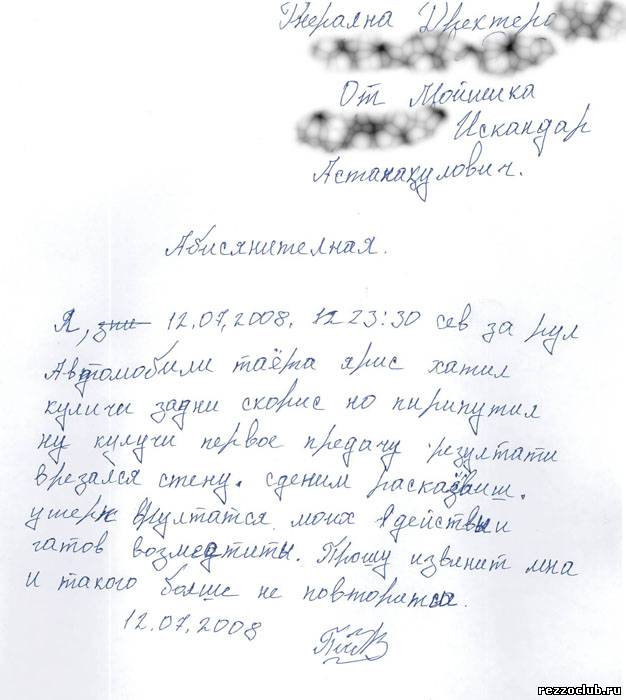 Генерална Дректеро
От Мойшика
Искандар
Астанакулович.
Абиснянителная.
Я, 12.07.2008. 12 23:30 сев за рул
Автомобили таёта ярис хатил
куличи задни скорис но пирипутил
ну кулучи первое предачу резултати
врезался стену. сделним расказаиш.
ушерн врултатся моих действыи
гатов возмедтиты. Прошу извинит мна
и такого болше не повторится.
12.07.2008
rezzoclub.ru